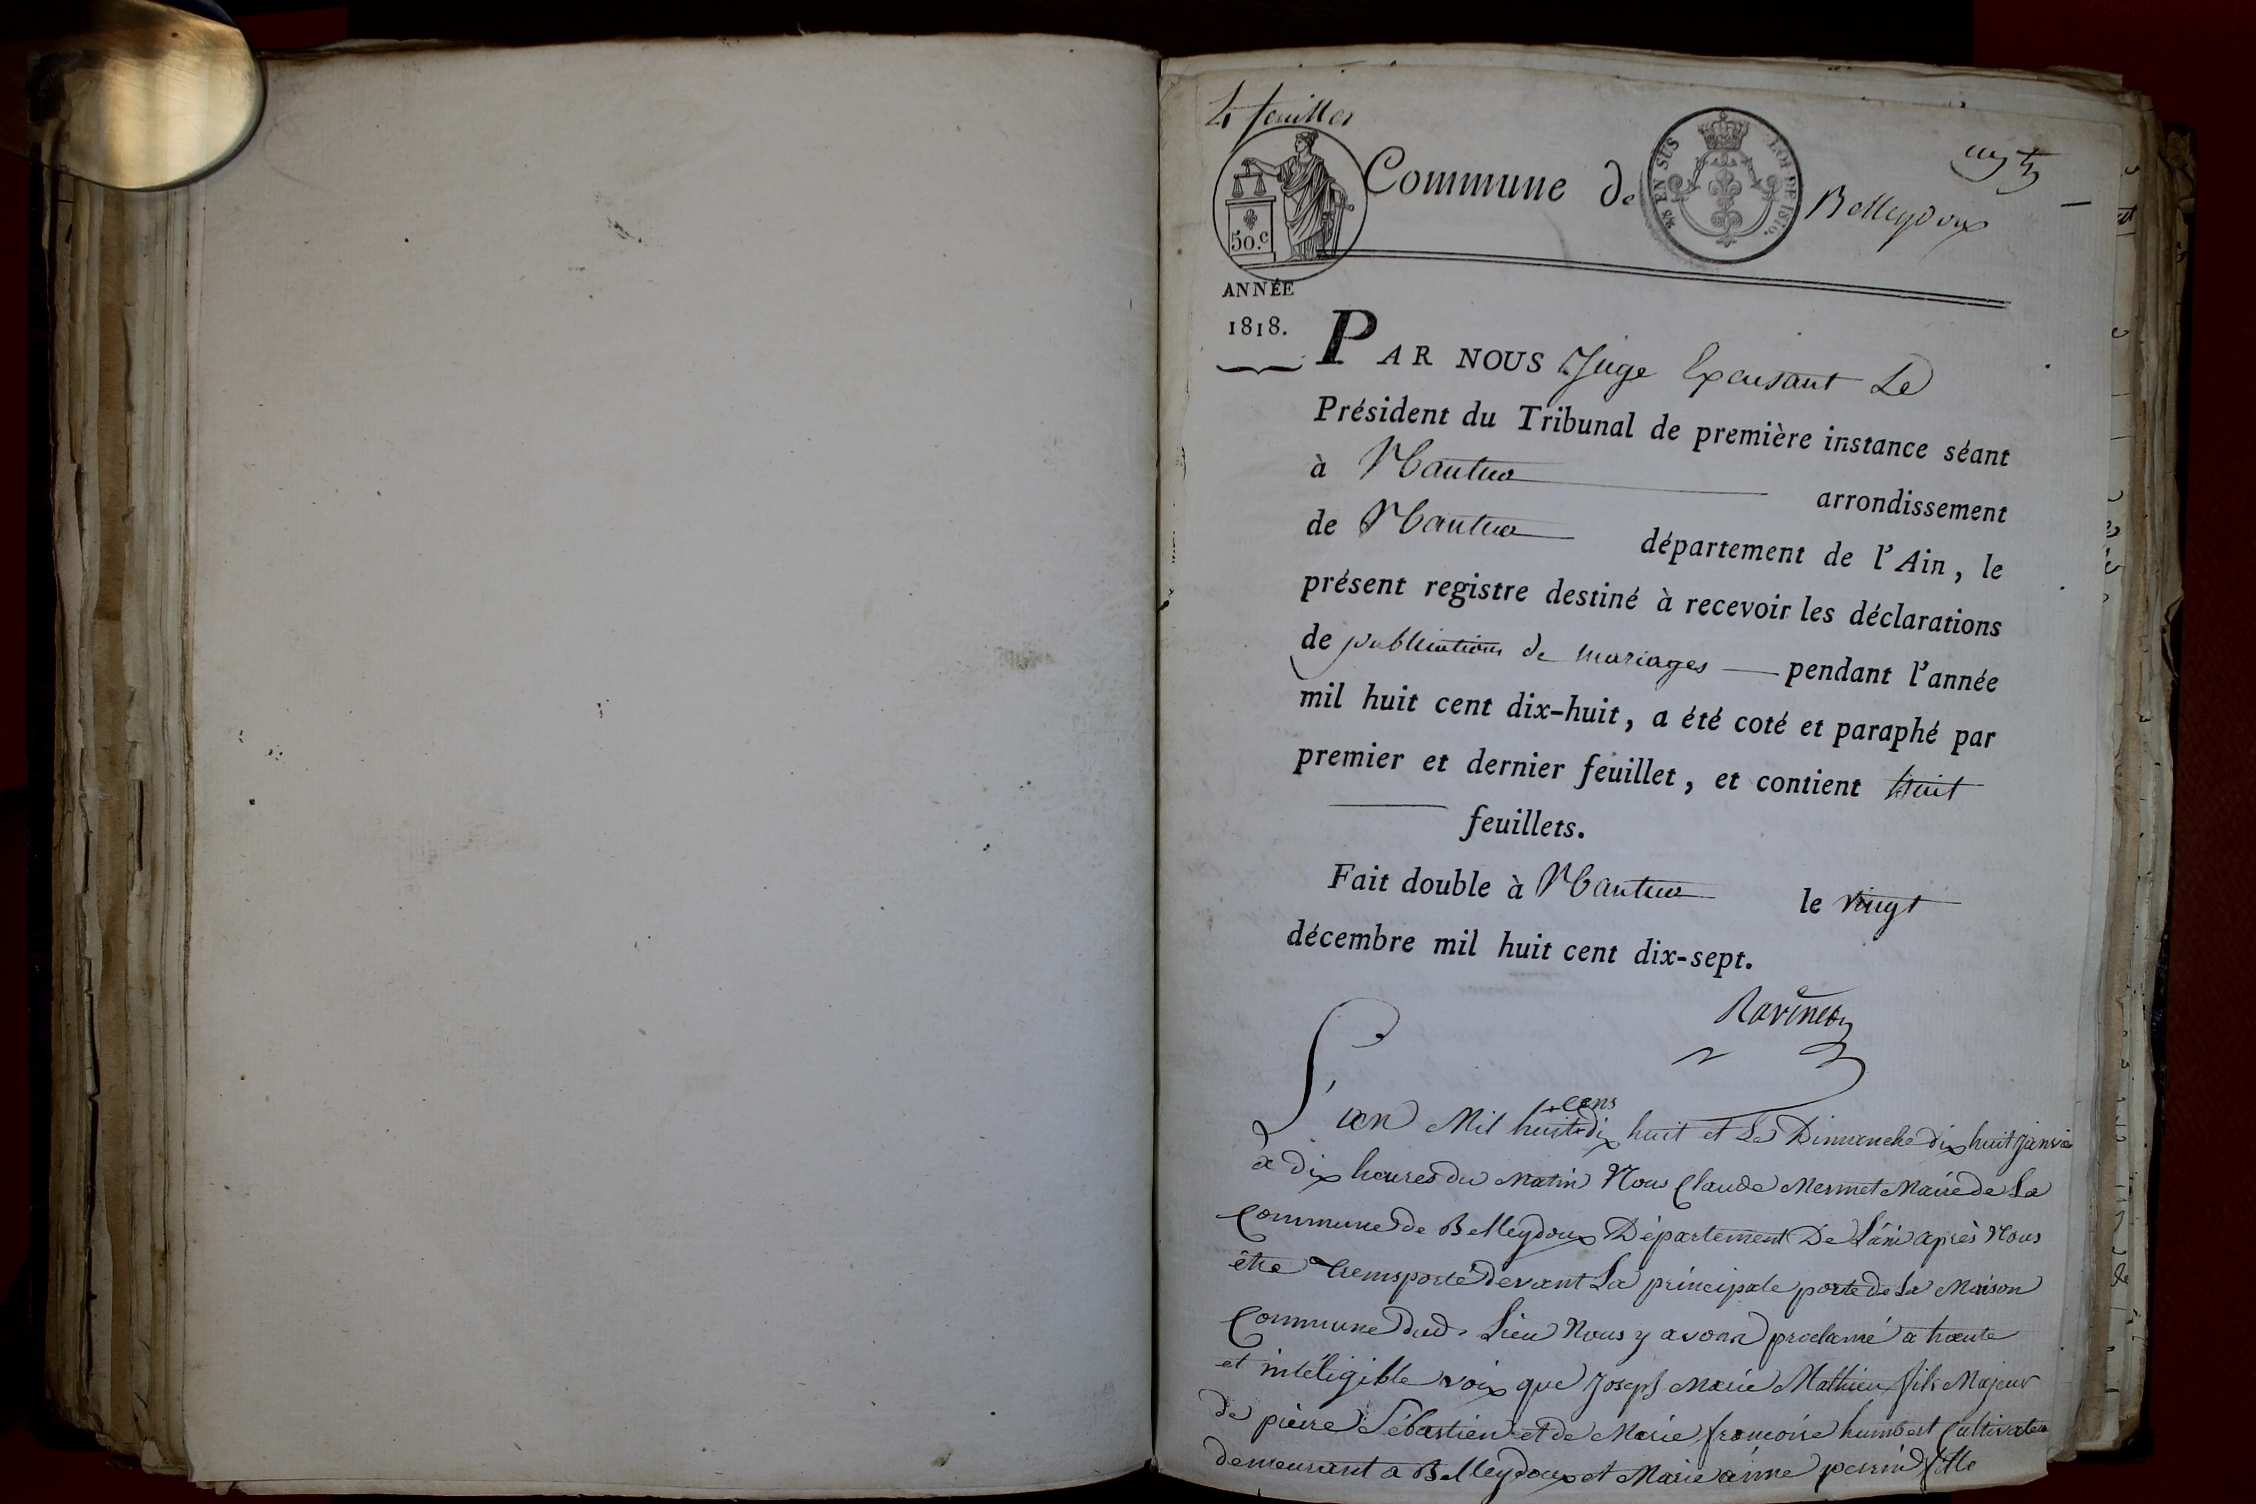 4 feuilles
Commune de Belleydoux
50.c
2/5 EN SUS
LOI DE 1816.
ANNÉE
1818.
PAR NOUS Juge Excusant Le
Président du Tribunal de première instance séant
à Nantua arrondissement
de Nantua département de l'Ain, le
présent registre destiné à recevoir les déclarations
de publications de mariages pendant l'année
mil huit cent dix-huit, a été coté et paraphé par
premier et dernier feuillet, et contient huit
feuillets.
Fait double à Nantua le vingt
décembre mil huit cent dix-sept.
Ravinet
L'an Mil huit cens dix huit et Le Dimanche dix huit janvier
a dix heures du Matin Nous Claude Mermet Maire de La
Commune de Belleydoux Département De L'ain après Nous
être transporté devant La principale porte de La Maison
Commune dud. Lieu Nous y avons proclamé a haute
et intéligible voix que Joseph Marie Mathieu fils Majeur
de pierre Sébastien et de Marie françoise humbert Cultivateur
demeurant a Belleydoux et Marie anne perrin fille